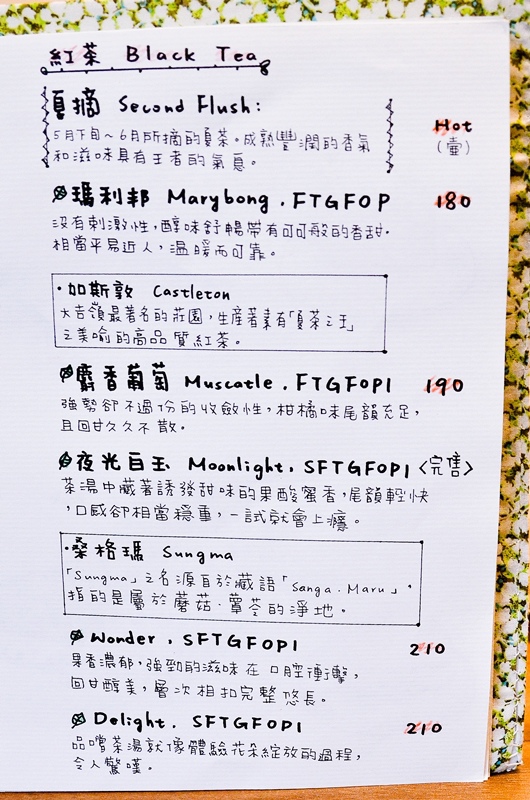 紅茶 Black Tea
夏摘 Second Flush:
5月下旬～6月所摘的夏茶。成熟豐潤的香氣
和滋味具有王者的氣息。
Hot
(壺)
瑪利邦 Marybong . FTGFOP 180
沒有刺激性,醇味舒暢帶有可可般的香甜.
相當平易近人,溫暖而可靠。
·如斯敦 Castleton
大吉嶺最著名的莊園,生產著素有「夏茶之王」
之美喻的高品質紅茶。
麝香葡萄 Muscatle . FTGFOP1 190
強勢卻不過份的收斂性,柑橘味尾韻充足,
且回甘久久不散.
夜光白玉 Moonlight. SFTGFOP1〈完售〉
茶湯中藏著誘發甜味的果酸蜜香,尾韻輕快
,口感卻相當穩重,一試就會上癮。
·桑格瑪 Sungma
「Sungma」之名源自於藏語「Sanga.Maru」.
指的是屬於蘑菇.蕈苓的淨地。
Wonder , SFTGFOP1 210
果香濃郁,強勁的滋味在口腔衝擊,
回甘醇美,層次相扣完整悠長。
Delight. SFTGFOP1 210
品嚐茶湯就像體驗花朵綻放的過程,
令人驚嘆。